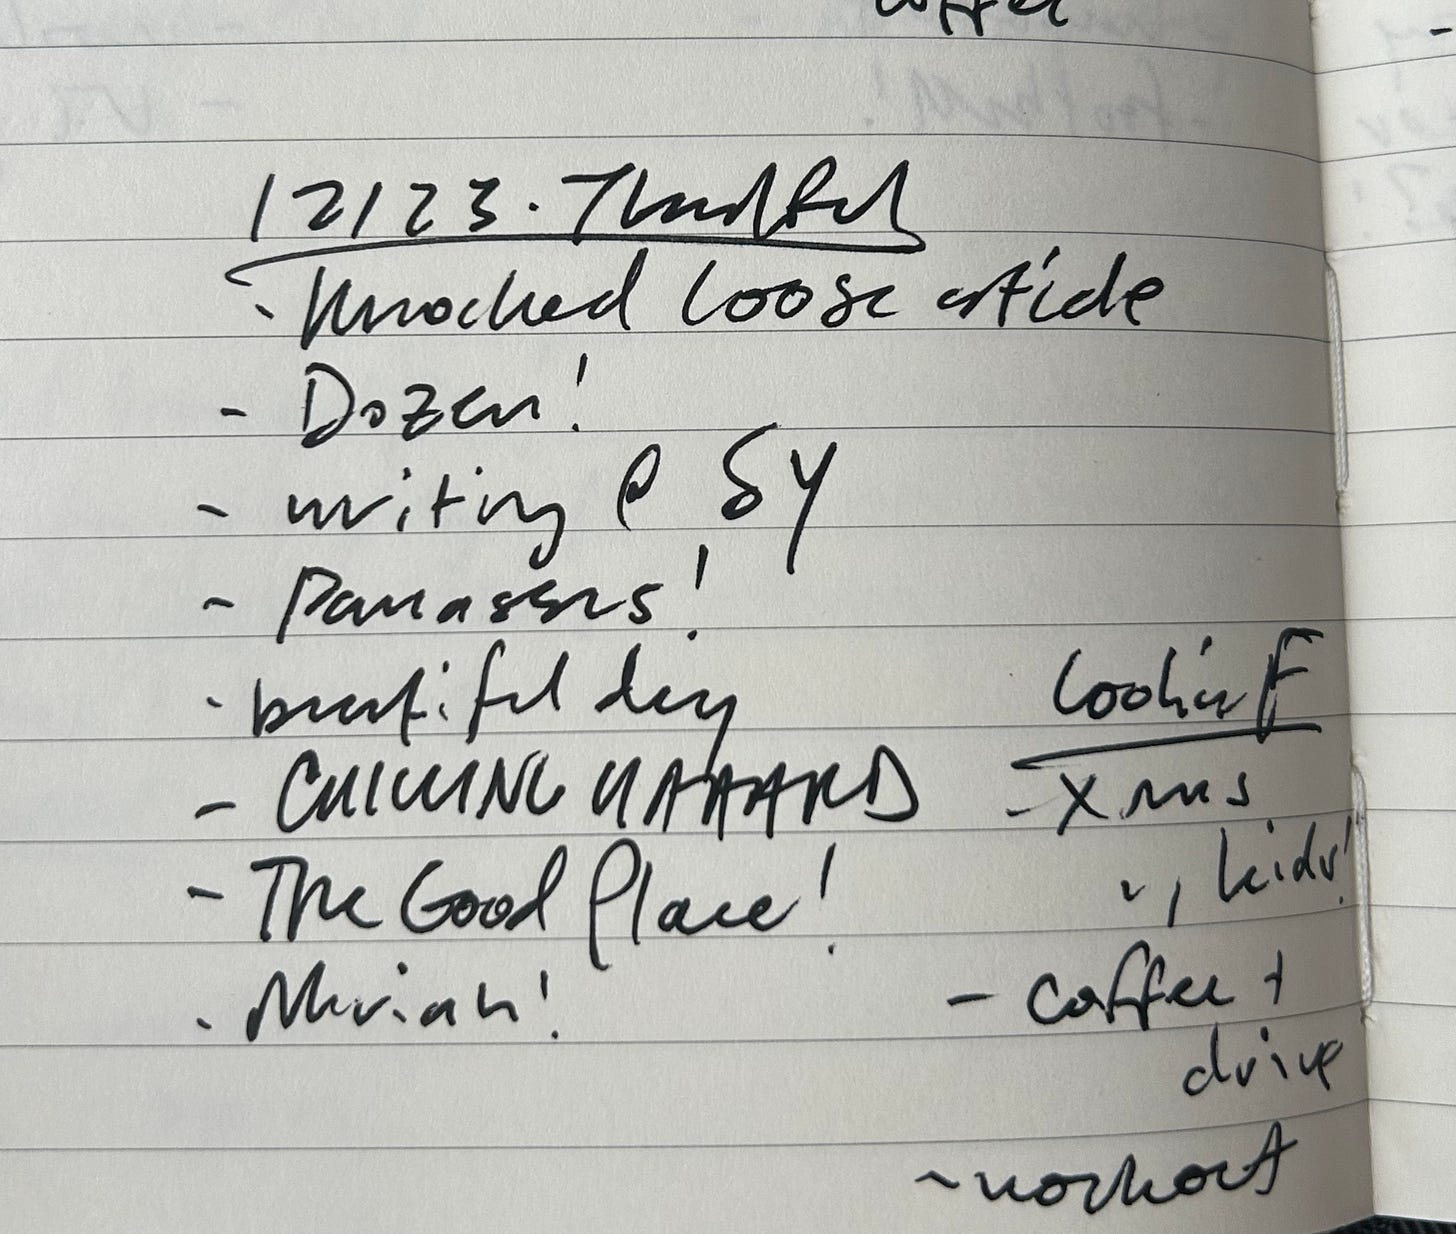 coffee
12/23. Thankful
- Knocked Loose article
- Dozen!
- writing @ SY
- beautiful day
- CHILLING HAAAARD
- The Good Place!
- Miriah!
Lookin F
- Xmas
w/ kids!
- coffee +
drive
- workout